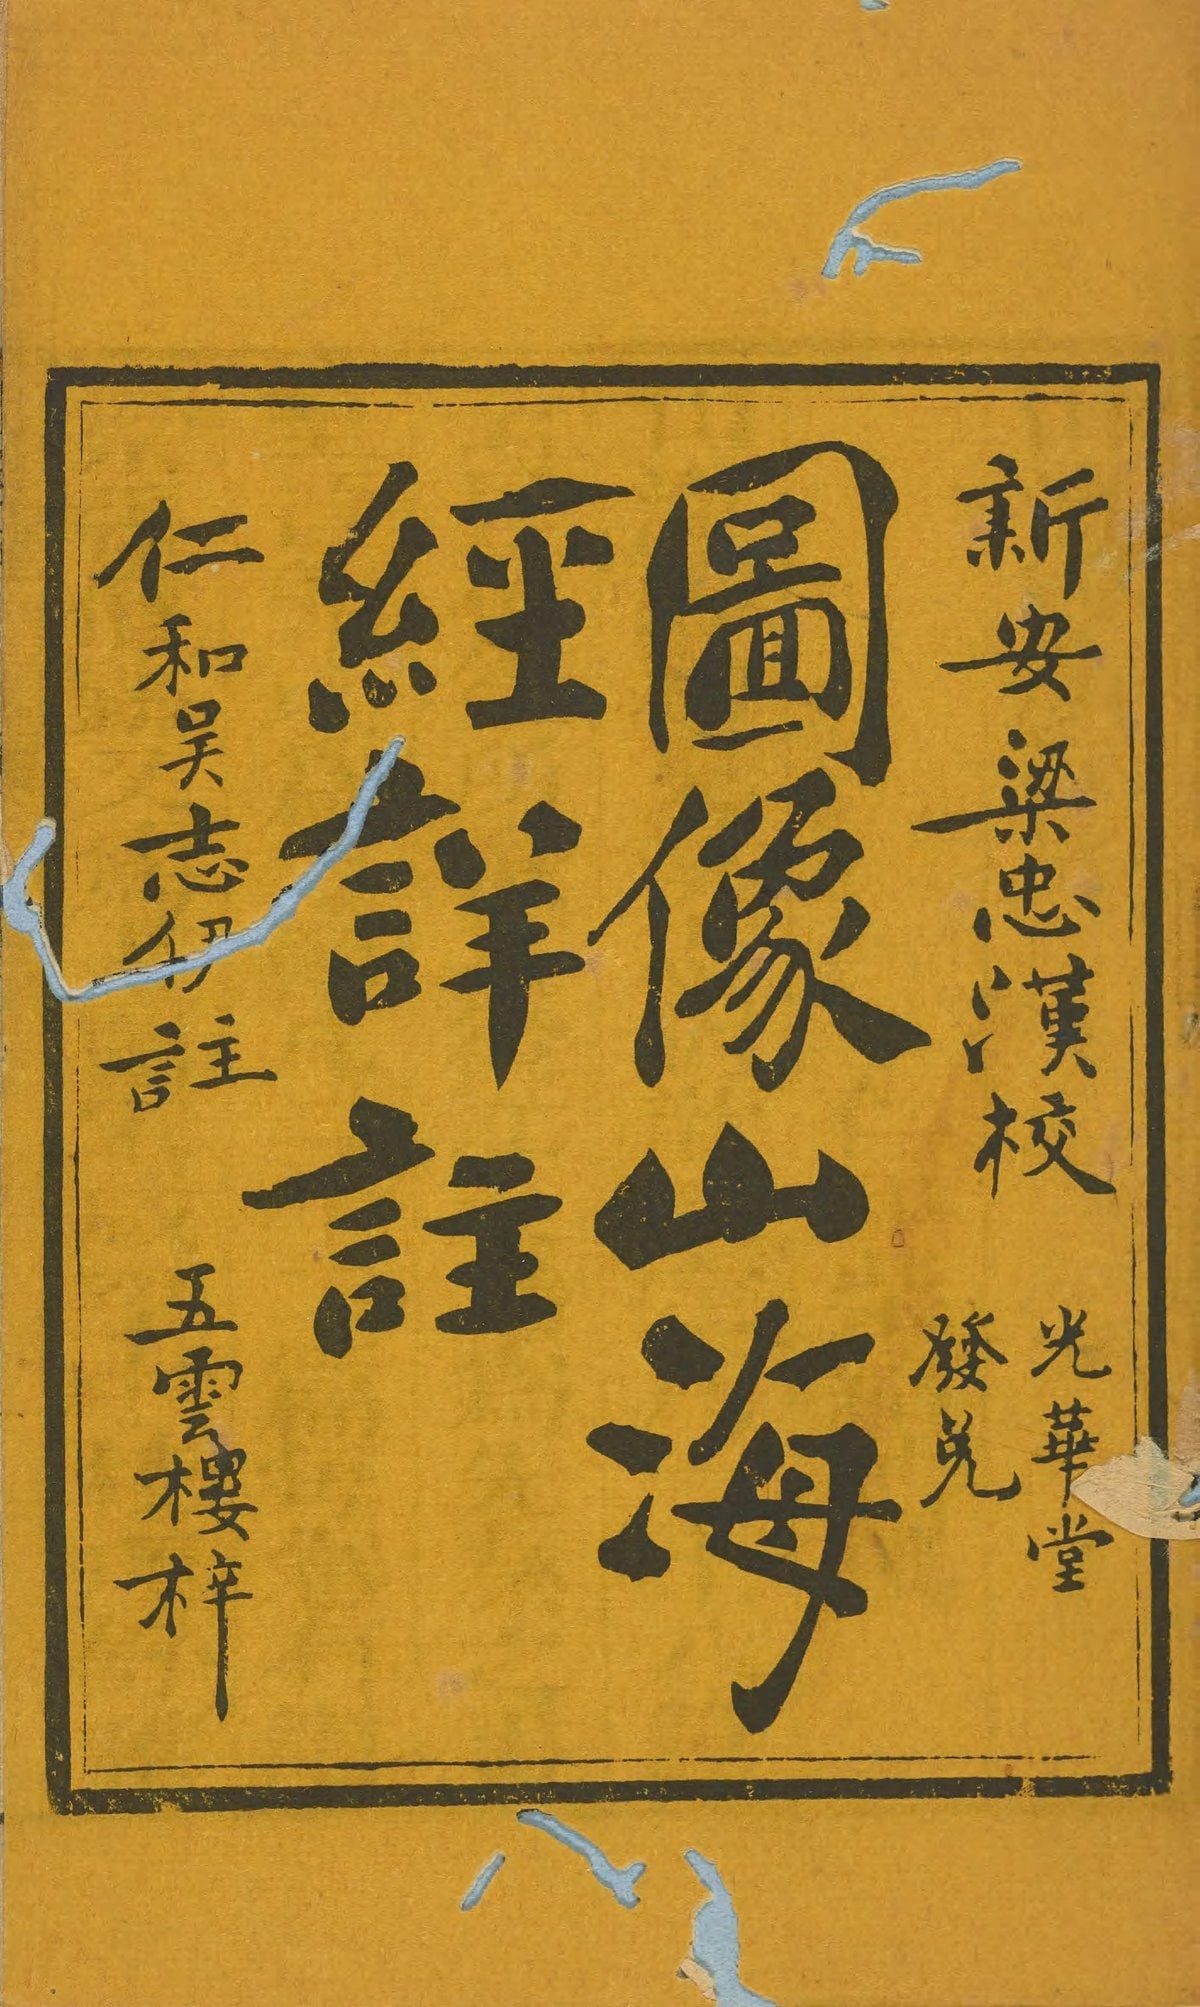 新安梁忠漢校
光華堂
發兌
圖像山海
經詳註
仁和吳志伊註
五雲樓梓